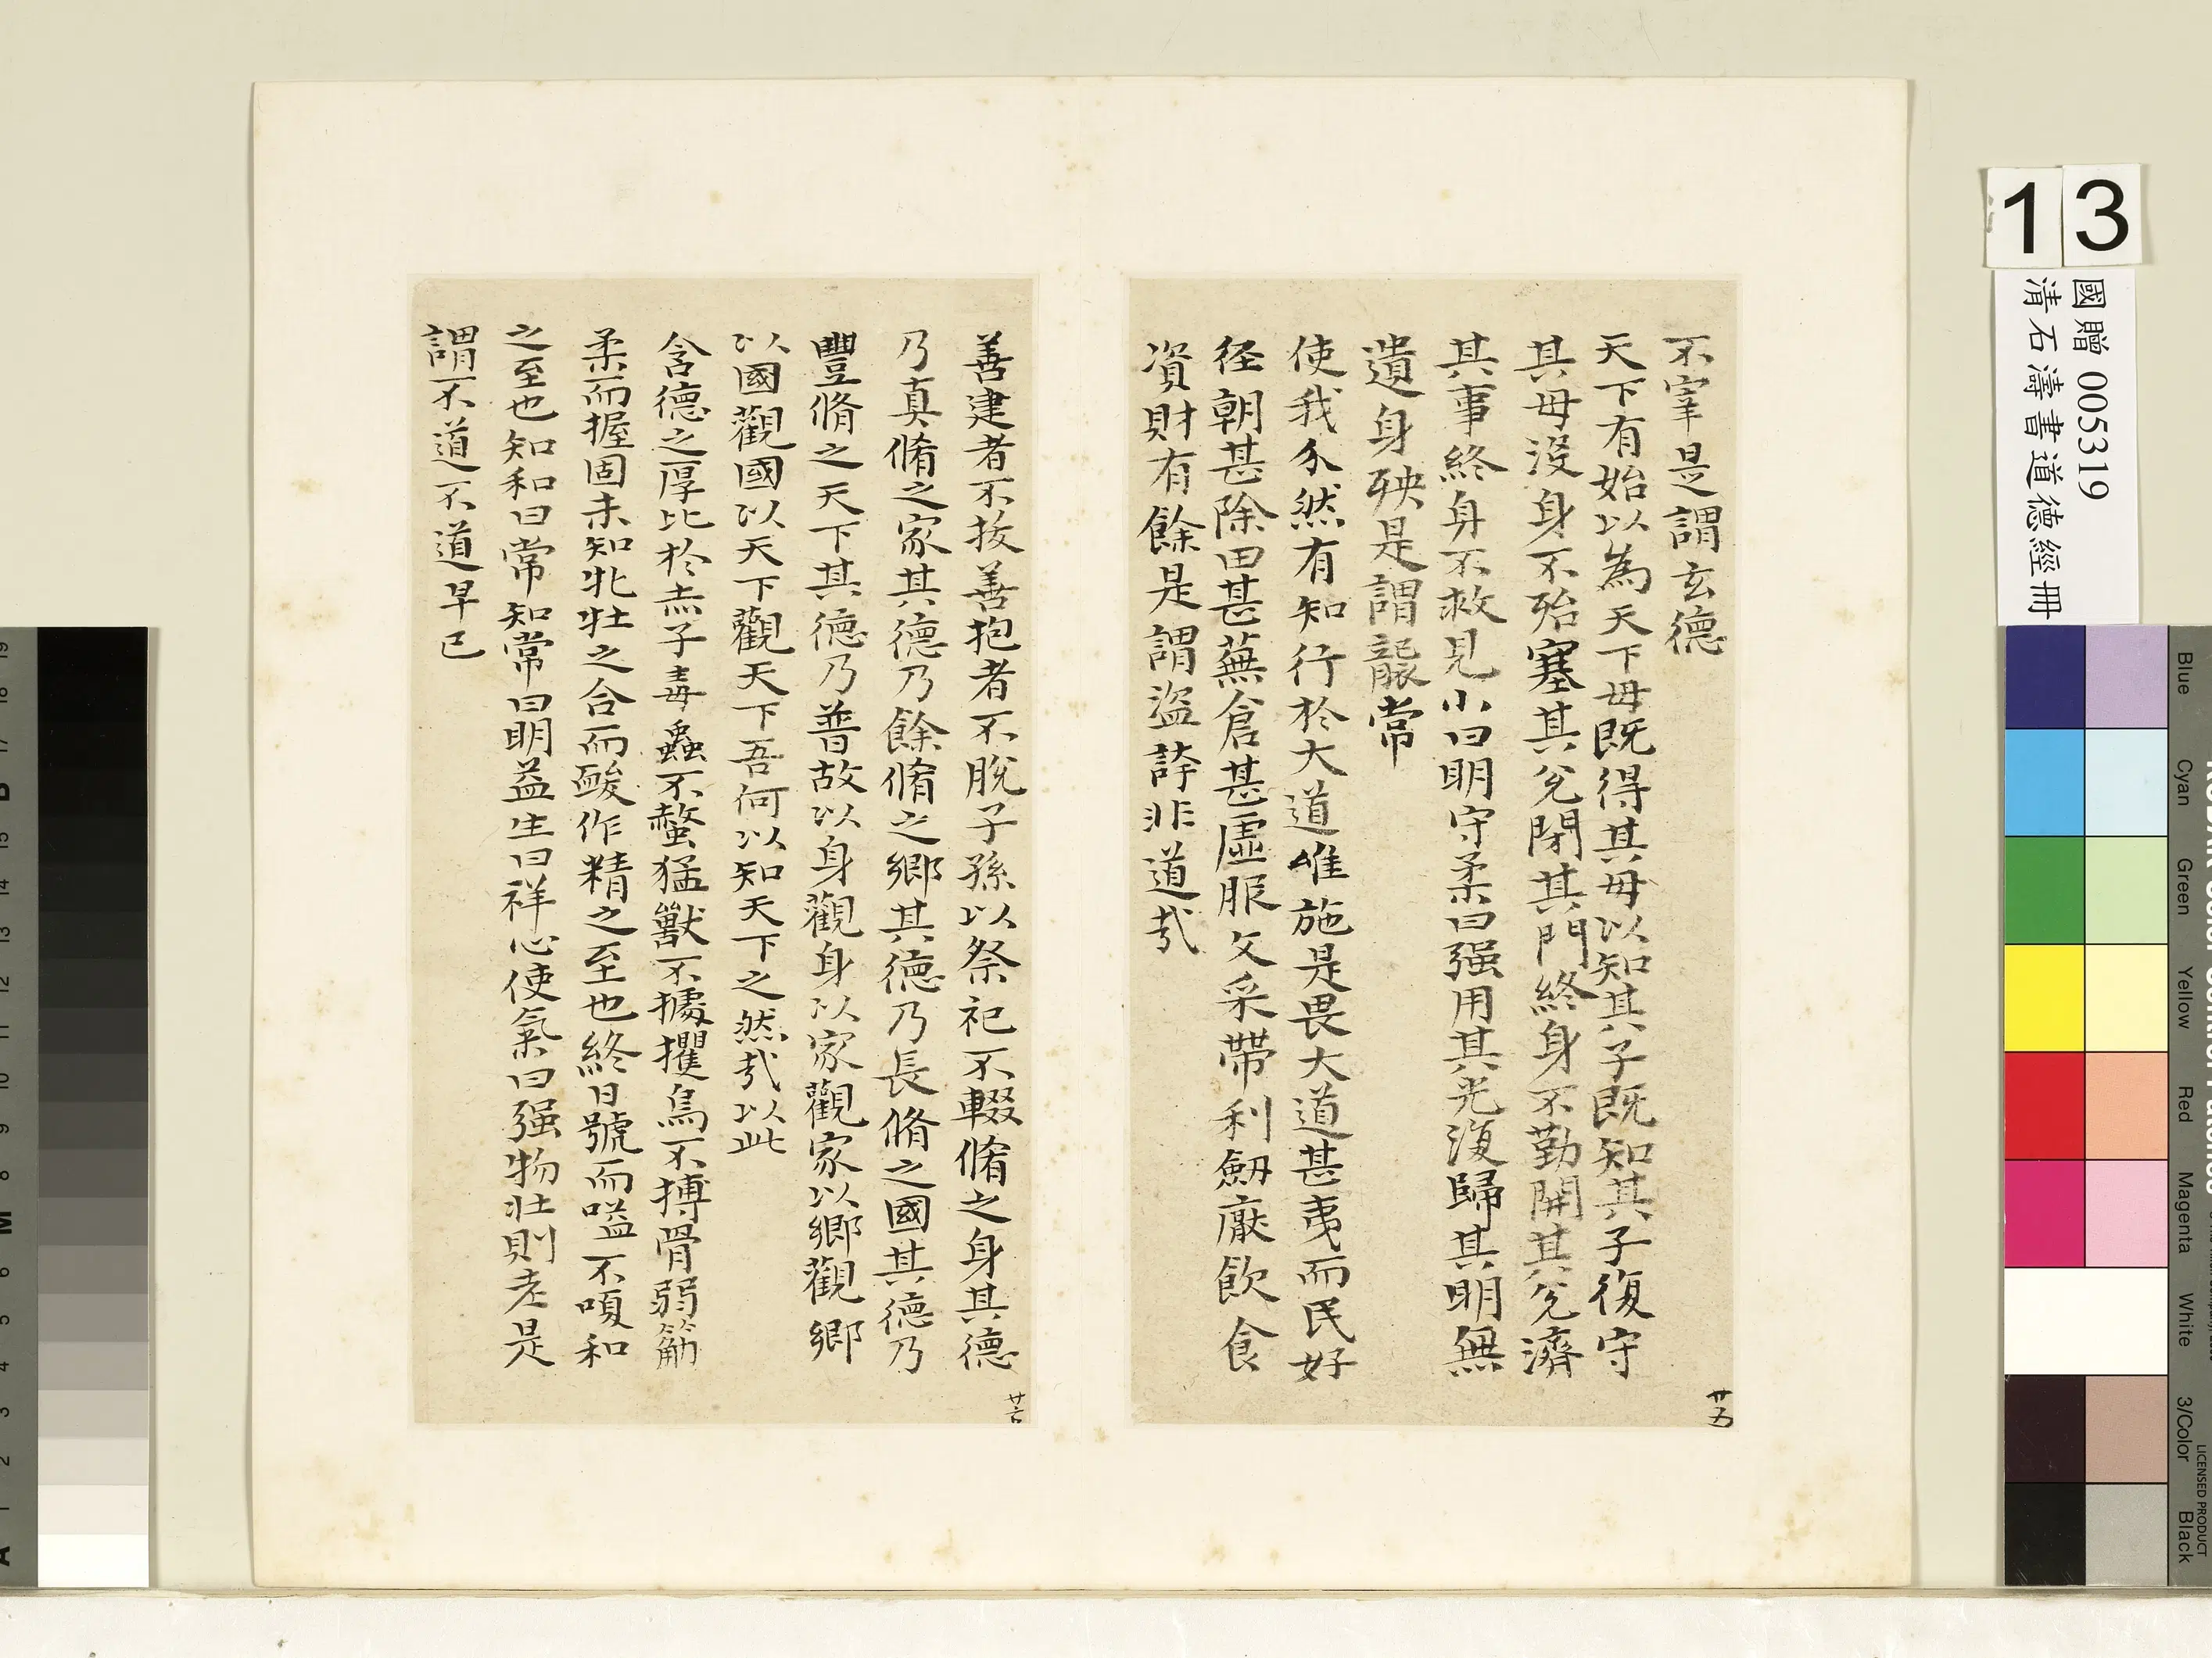 不宰是謂玄德
天下有始以為天下母既得其母以知其子既知其子復守
其母沒身不殆塞其兊閉其門終身不勤開其兊濟
其事終身不救見小曰明守柔曰强用其光復歸其明無
遺身殃是謂襲常
使我介然有知行於大道唯施是畏大道甚夷而民好
径朝甚除田甚蕪倉甚虛服文采帶利劒厭飲食
資財有餘是謂盜誇非道㢤
廿五
善建者不拔善抱者不脫子孫以祭祀不輟脩之身其德
乃真脩之家其德乃餘脩之鄉其德乃長脩之國其德乃
豐脩之天下其德乃普故以身觀身以家觀家以鄉觀鄉
以國觀國以天下觀天下吾何以知天下之然㢤以此
含德之厚比於赤子毒蟲不螫猛獸不據攫鳥不搏骨弱筋
柔而握固未知牝牡之合而䘒作精之至也終日號而嗌不嗄和
之至也知和曰常知常曰明益生曰祥心使氣曰强物壯則老是
謂不道不道早已
廿六
13
國贈 005319
清石濤書道德經冊
Blue
Cyan
Green
Yellow
Red
Magenta
White
3/Color
Black
LICENSED PRODUCT
19
17
B
15
14
13
12
11
10
9
8
M
6
5
4
3
2
1
A